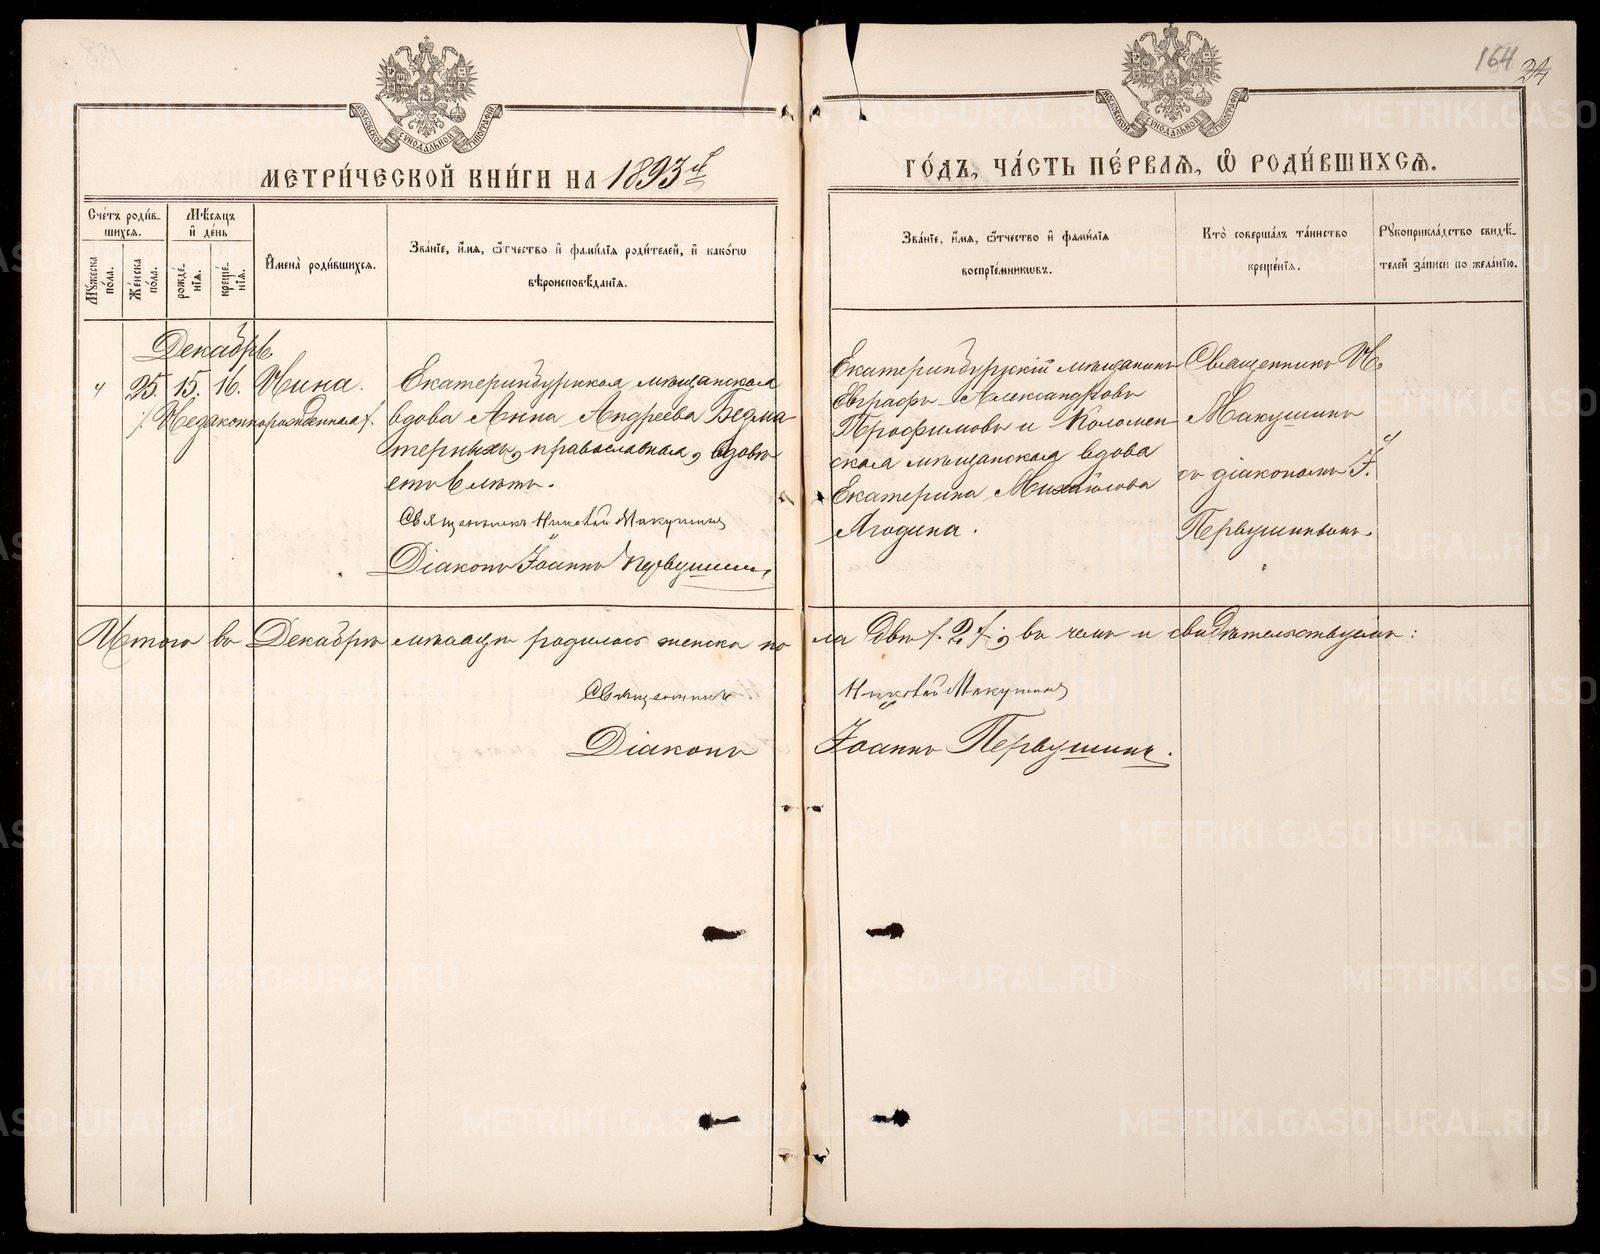 164 24
МОСКОВСКОЙ СѴНОДАЛЬНОЙ ТИПОГРАФІИ
МОСКОВСКОЙ СѴНОДАЛЬНОЙ ТИПОГРАФІИ
МЕТРИ́ЧЕСКОЙ КНИ́ГИ НА 1893й
ГО́ДЪ, ЧА́СТЬ ПЕ́РВАѦ, Ѡ РОДИ́ВШИХСѦ.
Сче́тъ роди́в-
шихсѧ.
Мѣсѧцъ
и҆ де́нь
Мꙋ́жеска
по́ла.
Же́нска
по́ла.
рожде́-
нїѧ.
креще́-
нїѧ.
И҆мена̀ роди́вшихсѧ.
Зва́нїе, и҆́мѧ, ѻ҆́тчество и҆ фами́лїѧ роди́телей, и҆ како́гѡ
вѣроисповѣ́данїѧ.
Зва́нїе, и҆́мѧ, ѻ҆́тчество и҆ фами́лїѧ
воспрїе́мникѡвъ.
Кто̀ соверша́лъ та́инство
креще́нїѧ.
Рꙋкоприкла́дство свидѣ́-
телей за́писи по жела́нїю.
Декабрь
" 25. 15. 16. Нина.
/. Незаконнорожденная /.
Екатеринбуркская мѣщанская
вдова Анна Андреева Безма-
терныхъ, православная, вдов
еть лѣтъ.
Священникъ Николай Макушинъ
Діаконъ Іоаннъ Первушинъ
Екатеринбургскій мѣщанинъ
Евграфъ Александровъ
Трофимовъ и Коломен-
ская мѣщанская вдова
Екатерина Михайлова
Ягодина.
Священникъ Н.
Макушинъ
съ діакономъ І.
Первушинымъ.
Итого въ Декабрѣ мѣсяцѣ родилось женска по
ла двѣ /. 2 /., въ чемъ и свидѣтельствуемъ:
Священникъ Николай Макушинъ
Діаконъ Іоаннъ Первушинъ.
METRIKI.GASO-URAL.RU